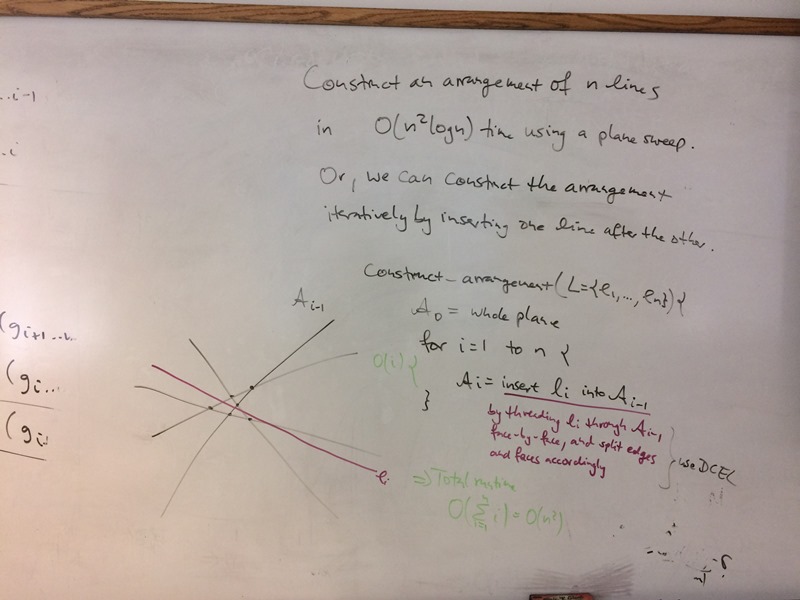 ..i-1
..i
Construct an arrangement of n lines
in O(n²logn) time using a plane sweep.
Or, we can construct the arrangement
iteratively by inserting one line after the other.
Construct_arrangement(L={ℓ₁,...,ℓₙ}){
A₀ = whole plane
for i=1 to n {
O(i) { Aᵢ = insert ℓᵢ into Aᵢ₋₁
}
by threading ℓᵢ through Aᵢ₋₁
face-by-face, and split edges
and faces accordingly
} use DCEL
⇒ Total runtime
O(∑ᵢ₌₁ⁿ i) = O(n²)
Aᵢ₋₁
ℓᵢ
(gᵢ₊₁...
(gᵢ...
(gᵢ